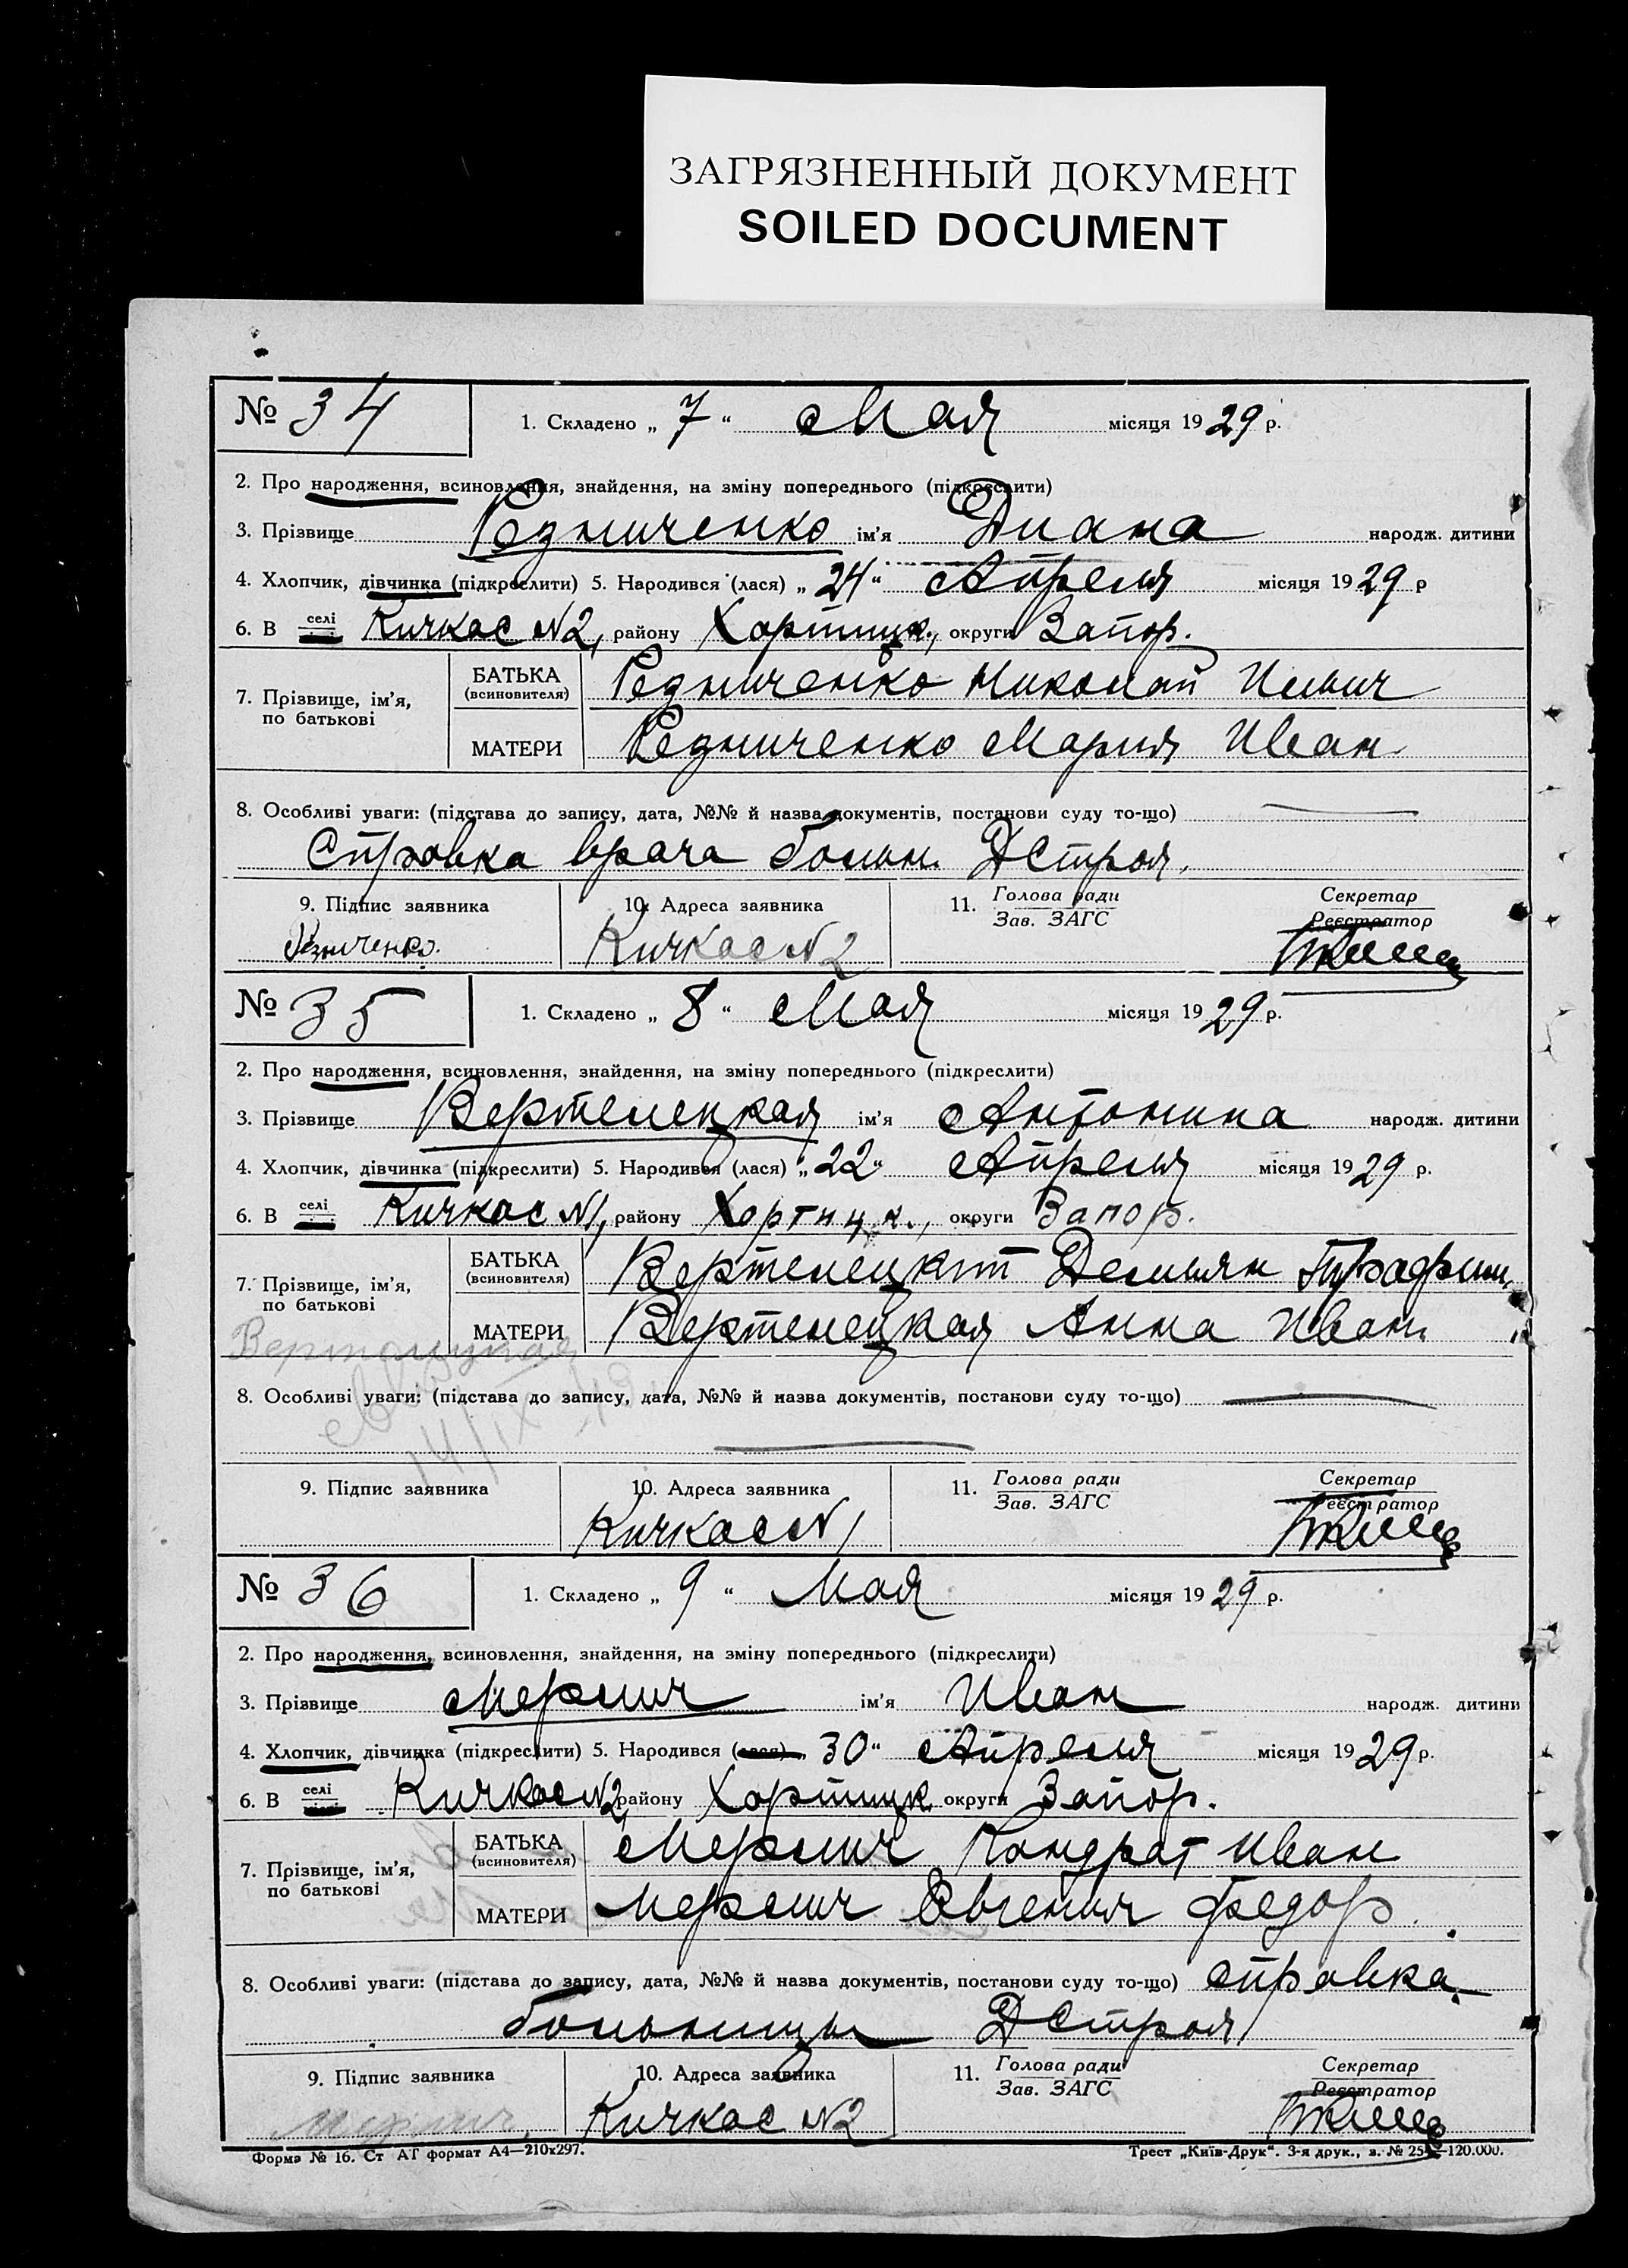 ЗАГРЯЗНЕННЫЙ ДОКУМЕНТ
SOILED DOCUMENT
№ 34 1. Складено „ 7 “ Мая місяця 1929 р.
2. Про народження, всиновлення, знайдення, на зміну попереднього (підкреслити)
3. Прізвище Редниченко ім'я Диана народж. дитини
4. Хлопчик, дівчинка (підкреслити) 5. Народився (лася) „ 24 “ Апреля місяця 1929 р
6. В селі Кичкас №2, району Хортицк., округи Запор.
7. Прізвище, ім'я, по батькові
БАТЬКА (всиновителя) Редниченко Николай Ильич
МАТЕРИ Редниченко Мария Иван
8. Особливі уваги: (підстава до запису, дата, №№ й назва документів, постанови суду то-що)
Справка врача больн. ДСтроя.
9. Підпис заявника 10. Адреса заявника 11. Голова ради Зав. ЗАГС Секретар Реєстратор
Кичкас №2
№ 35 1. Складено „ 8 “ Мая місяця 1929 р.
2. Про народження, всиновлення, знайдення, на зміну попереднього (підкреслити)
3. Прізвище Вертелецкая ім'я Антонина народж. дитини
4. Хлопчик, дівчинка (підкреслити) 5. Народився (лася) „ 22 “ Апреля місяця 1929 р.
6. В селі Кичкас №1, району Хортицк., округи Запор.
7. Прізвище, ім'я, по батькові
БАТЬКА (всиновителя) Вертелецкий Демьян
МАТЕРИ Вертелецкая Анна Иван
8. Особливі уваги: (підстава до запису, дата, №№ й назва документів, постанови суду то-що)
9. Підпис заявника 10. Адреса заявника 11. Голова ради Зав. ЗАГС Секретар Реєстратор
Кичкас №1
№ 36 1. Складено „ 9 “ Мая місяця 1929 р.
2. Про народження, всиновлення, знайдення, на зміну попереднього (підкреслити)
3. Прізвище Мерлич ім'я Иван народж. дитини
4. Хлопчик, дівчинка (підкреслити) 5. Народився (лася) „ 30 “ Апреля місяця 1929 р.
6. В селі Кичкас №2 району Хортицк округи Запор.
7. Прізвище, ім'я, по батькові
БАТЬКА (всиновителя) Мерлич Кондрат Иван
МАТЕРИ Мерлич Евгения Федор.
8. Особливі уваги: (підстава до запису, дата, №№ й назва документів, постанови суду то-що) справка
больницы ДСтроя
9. Підпис заявника 10. Адреса заявника 11. Голова ради Зав. ЗАГС Секретар Реєстратор
Мерлич Кичкас №2
Форма № 16. Ст АТ формат А4—210х297. Трест „Київ-Друк“. 3-я друк., з. № 25 —120.000.